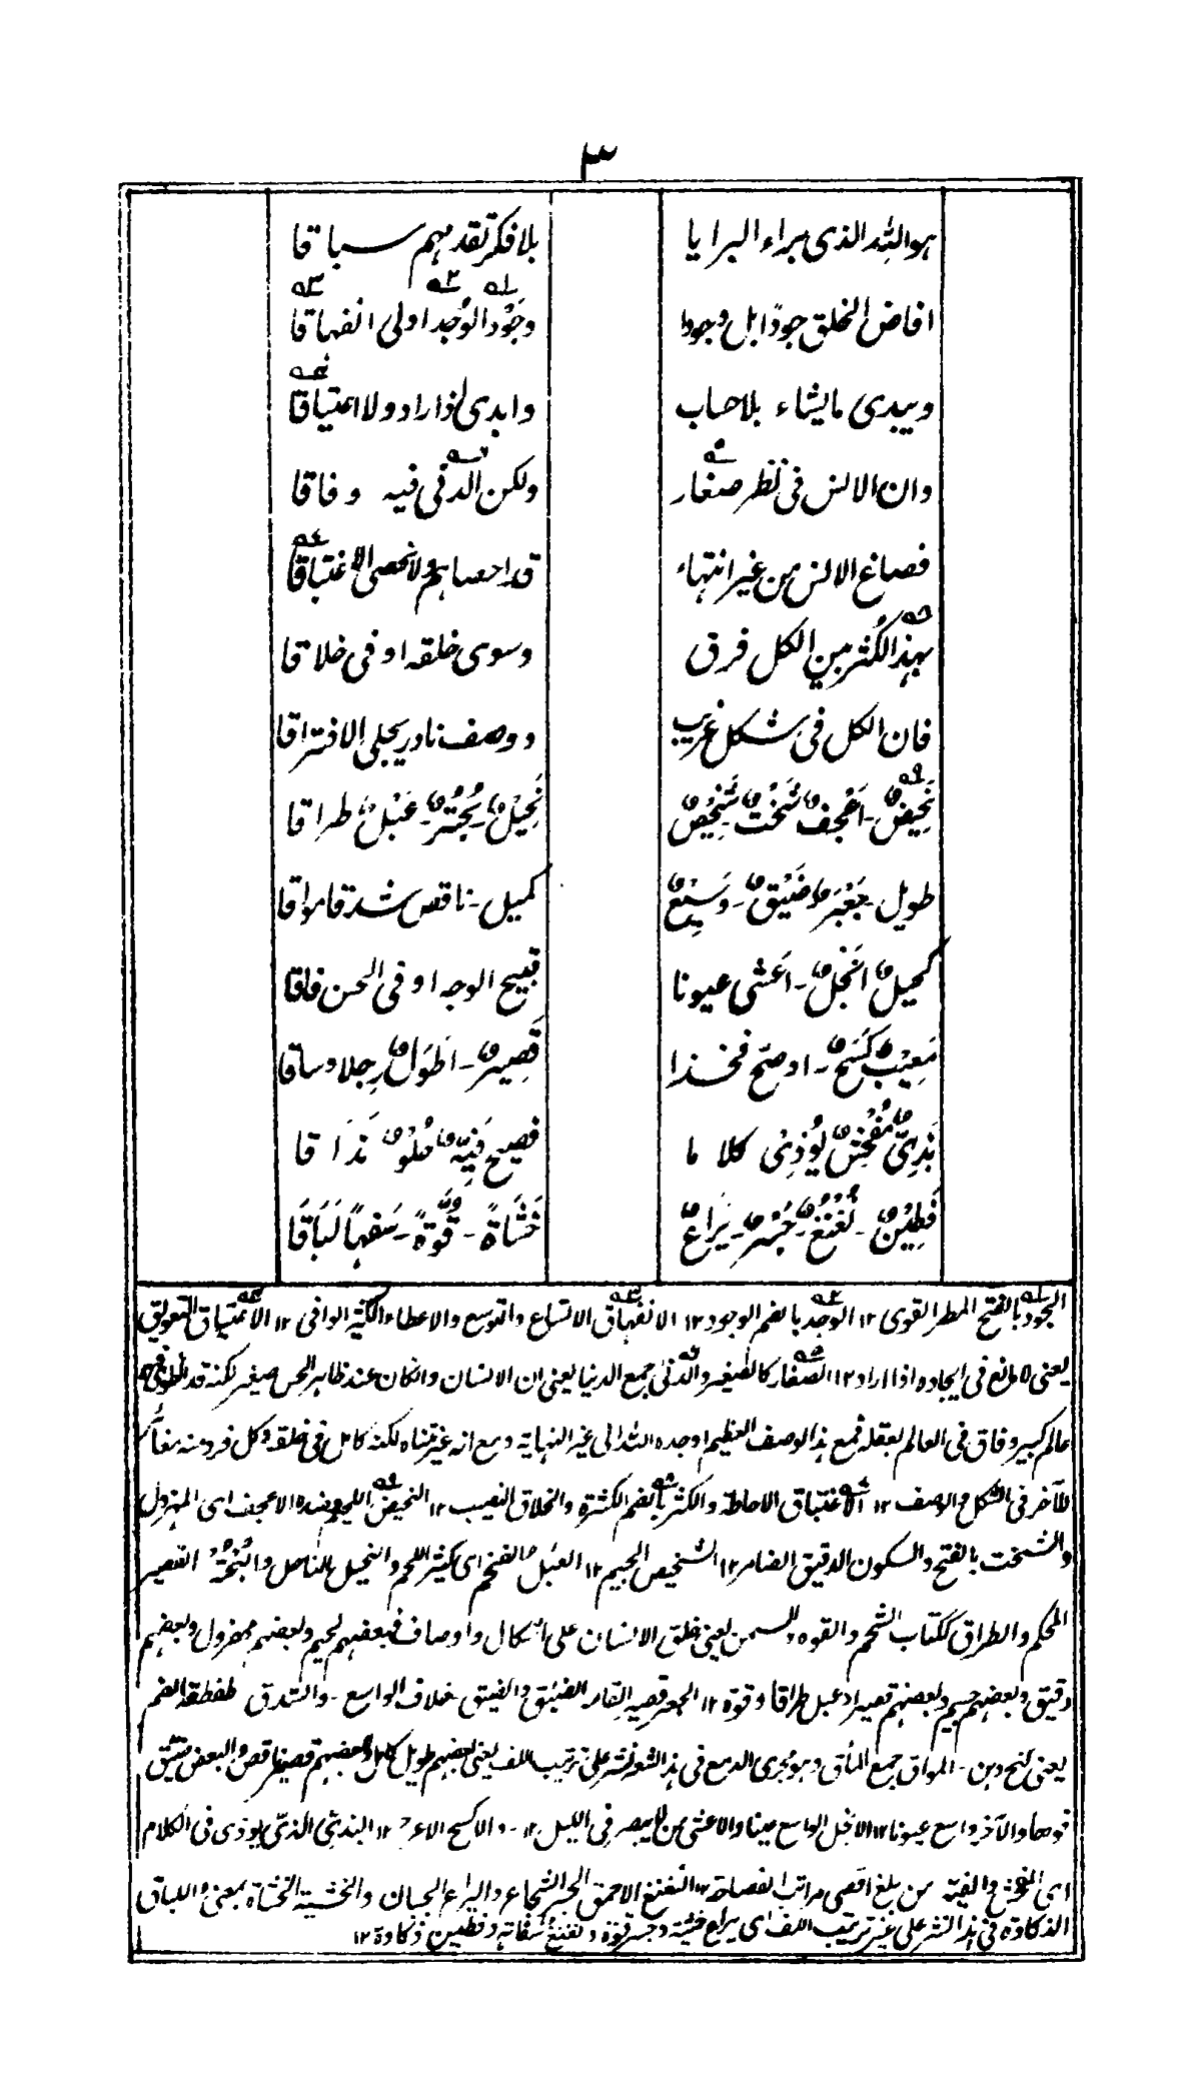 ٣
هو الله الذى براء البرايا بلا فكر تقدمهم سباقا
افاض الخلق جودًا بل وجودا وجَوْد الوُجد اولى انفهاقا
ويبدى ما يشاء بلا حساب وابدى اذا اراد ولا اعتياقا
وان الانس فى نظر صغار ولكن الدنى فيه وفاقا
فصاغ الانس من غير انتهاء قد احصاهم ولا نحصى الاغتباقا
بهذا الكُثر بين الكل فرق وسوى خلقه اوفى خلاقا
فان الكل فى شكل غريب ووصف نادر يجلى الافتراقا
نَحِيضٌ - اَعْجفٌ شَخْتٌ شَخِيصٌ نَحِيْلٌ - بُحْتُرٌ - عَبْلٌ طراقا
طويل - جَعْبَرٌ ضَيْقٌ - وَسِيْعٌ كميل - ناقص شدقا مواقا
كحيلٌ اَنْجَلٌ - اَعشى عيونا قبيح الوجه او فى الحسن فاقا
مَعِيْبٌ كَسَحٌ - او صحّ فخذا قَصِيرٌ - اَطْوَلٌ رِجلا وساقا
بَذِىٌّ مُفْحِشٌ يُؤذِىْ كلا ما فصيح فَيِّهٌ حُلْوٌ مَذَاقا
فَطِيْنٌ - لُغْنُغٌ - جَسْرٌ - يَرَاعٌ خَشَاةً - قُوَّةً - سَفهًا لَبَاقَا
الجود بالفتح المطر القوى ١٢ الوجد بالضم الوجود ١٢ الانفهاق الاتساع والتوسع والاعطاء الكثير الوافى ١٢ الاعتياق التعويق
يعنى لا مانع فى ايجاده اذا اراد ١٢ الصغار كالصغير والدنى جمع الدنيا يعنى ان الانسان وان كان عند ظاهر الحس صغير لكنه قد انطوى فيه
عالم كبير وفاق فى العالم بعقله فمع هذا الوصف العظيم اوجده الله الى غير النهاية ومع انه غير متناه لكنه كامل فى خلقه وكل فرد منه مغاير
للآخر فى الشكل والوصف ١٢ الاغتباق الاحاطة والكثر بالضم الكثرة والخلاق النصيب ١٢ النحيض اللحيم وضده الاعجف اى المهزول
والشخت بالفتح والسكون الدقيق الضامر ١٢ الشخيص الجسيم ١٢ العبل الضخم اى كثير اللحم والنحيل الناحل والبُحْتُر القصير
المحكم والطراق ككتاب الشحم والقوة والسمن يعنى خلق الانسان على اشكال واوصاف فبعضهم لحيم وبعضهم مهزول وبعضهم
دقيق وبعضهم جسيم وبعضهم قصير او عبل طراقا وقوة ١٢ الجعبر قصير القامة الضيق والضيق خلاف الواسع - والشدق طفطفة الفم
يعنى كنج دهن - المواق جمع المأق وهو مجرى الدمع فى هذا الشعر نشر على ترتيب اللف يعنى بعضهم طويل كامل وبعضهم قصير ناقص والبعض ضيق
فوها والآخر واسع عيونا ١٢ الانجل الواسع عينا والاعشى من لا يبصر فى الليل ١٢ - والاكسح الاعرج ١٢ البذىّ الذى يوذى فى الكلام
اى المفحش والفيّه من بلغ اقصى مراتب الفصاحة ١٢ اللغنغ الاحمق الجسر الشجاع واليراع الجبان والخشية الخشاة بمعنى واللباق
الذكاوة فى هذا النشر على غير ترتيب اللف اى يراع خشية وجسر قوة ولغنغ سفاهة وفطين ذكاوة ١٢